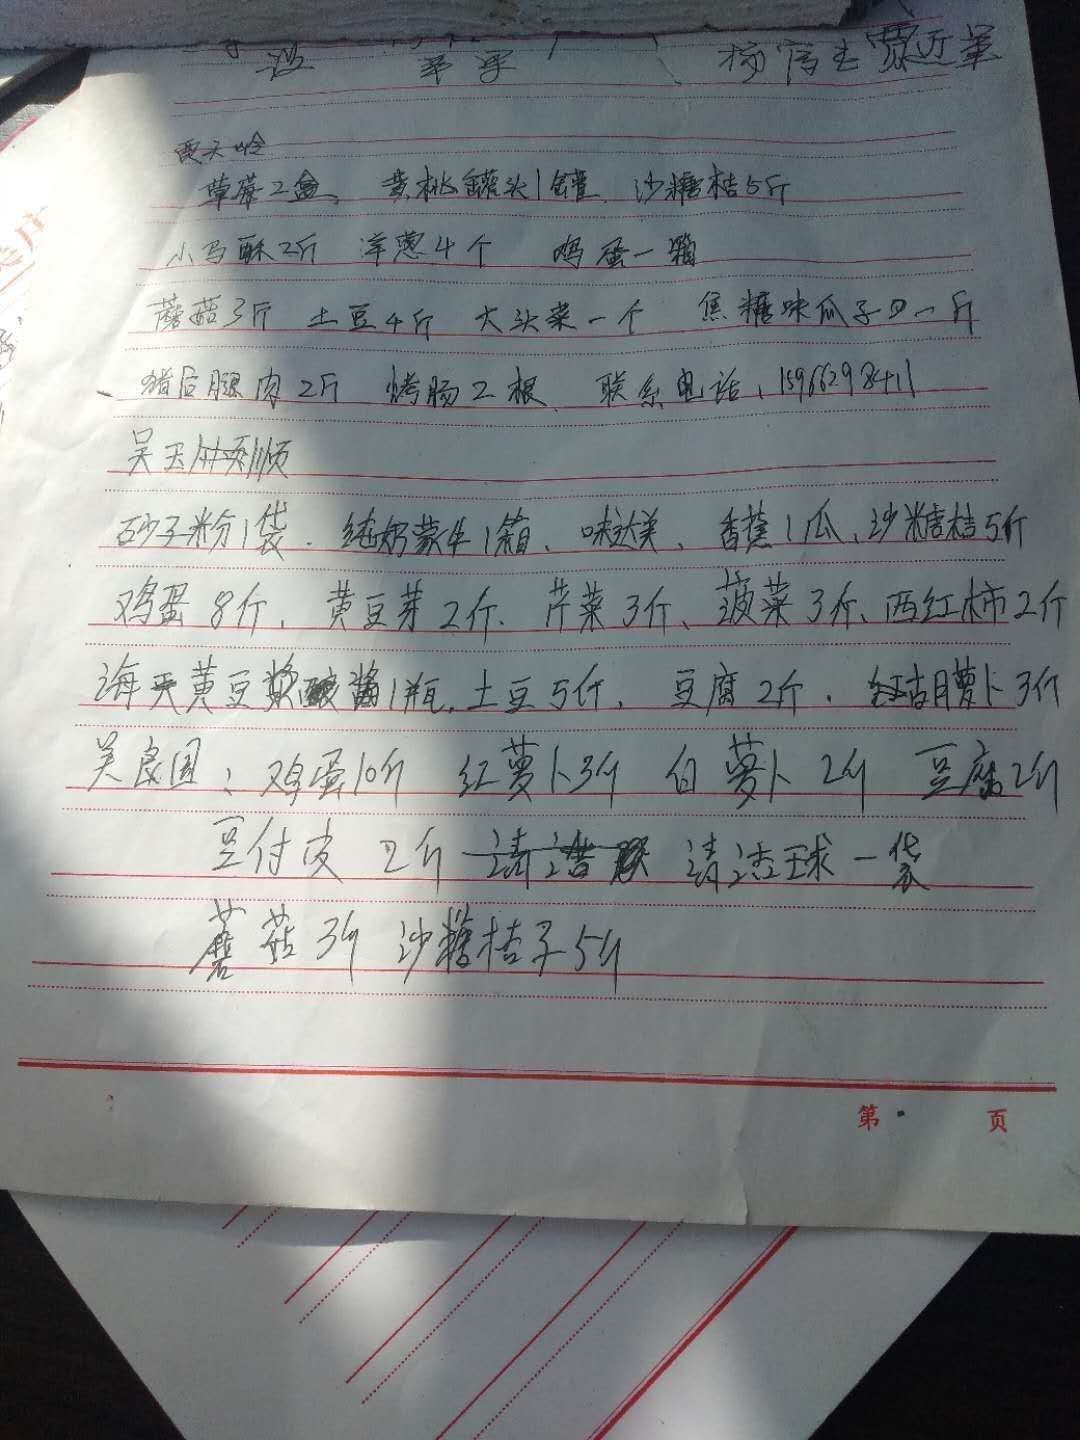 杨官志 贾近军
贾天岭
草莓2盒、黄桃罐头1罐、沙糖桔5斤
小马酥2斤 洋葱4个 鸡蛋一箱
蘑菇3斤 土豆4斤 大头菜一个 焦糖味瓜子 一斤
猪后腿肉2斤 烤肠2根、联系电话、15966298411
吴玉 顺
砂子粉1袋、纯奶蒙牛1箱、味达美、香蕉1瓜、沙糖桔5斤
鸡蛋8斤、黄豆芽2斤、芹菜3斤、菠菜3斤、西红柿2斤
海天黄豆 酱1瓶、土豆5斤、豆腐2斤、红胡萝卜3斤
吴良国、鸡蛋10斤 红萝卜3斤 白萝卜2斤 豆腐2斤
豆付皮2斤 清洁球一袋
蘑菇3斤 沙糖桔子5斤
第 页